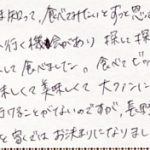 知って、食べてみたいとずっと思っ
行く機会があり 探して探
して食べました。食べてビッ
味しくて美味しくて 大ファンに
行けることがないのですが、長野
家ではお決まりになりまし